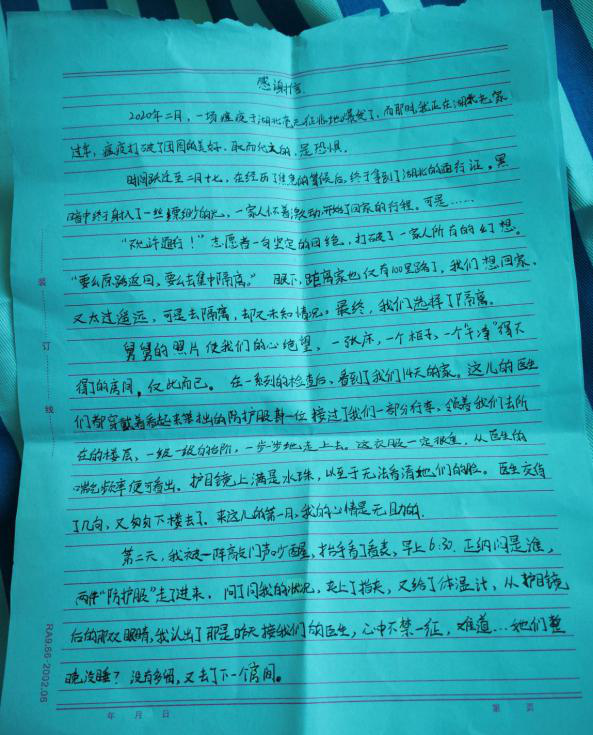 感谢信
2020年二月，一场瘟疫于湖北毫无征兆地爆发了，而那时我正在湖北老家
过年，瘟疫打破了团圆的美好，取而代之的，是恐惧。
时间跃迁至二月十七，在经历了焦急的等候后，终于拿到了湖北的通行证。黑
暗中终于射入了一丝缥缈的光，一家人怀着激动开始了回家的行程。可是……
“不允许通行！”志愿者一句坚定的回绝，打破了一家人所有的幻想。
“要么原路返回，要么去集中隔离。”眼下，距离家也仅有100里路了，我们想回家，
又太过遥远，可是去隔离，却又未知情况。最终，我们选择了隔离。
舅舅的照片使我们的心绝望，一张床，一个柜子，一个“干净”得不
得了的房间，仅此而已。在一系列的检查后，看到了我们14天的家。这儿的医生
们都穿戴着看起来笨拙的防护服，一位接过了我们一部分行李，领着我们去所
在的楼层，一级一级的台阶，一步步地走上去。这衣服一定很重，从医生的
喘气频率便可看出。护目镜上满是水珠，以至于无法看清她们的脸。医生交待
了几句，又匆匆下楼去了。来这儿的第一日，我的心情是无助的.
第二天，我被一阵敲门声吵醒，抬手看了看表，早上6:30.正纳闷是谁，
两件“防护服”走了进来，问了问我的状况，夹上了指夹，又给了体温计，从护目镜
后的那双眼睛，我认出了那是昨天接我们的医生，心中不禁一征，难道…她们整
晚没睡？没有多问，又去了下一个房间。
装
订
线
RA9.86-2002.06
年 月 日
第 页